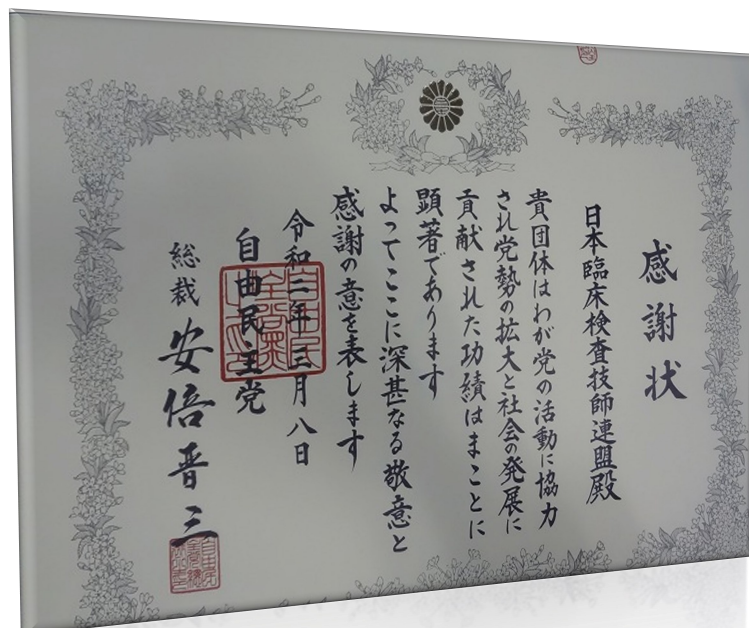 感謝状
日本臨床検査技師連盟殿
貴団体はわが党の活動に協力
され党勢の拡大と社会の発展に
貢献された功績はまことに
顕著であります
よってここに深甚なる敬意と
感謝の意を表します
令和二年三月八日
自由民主党
総裁 安倍晋三